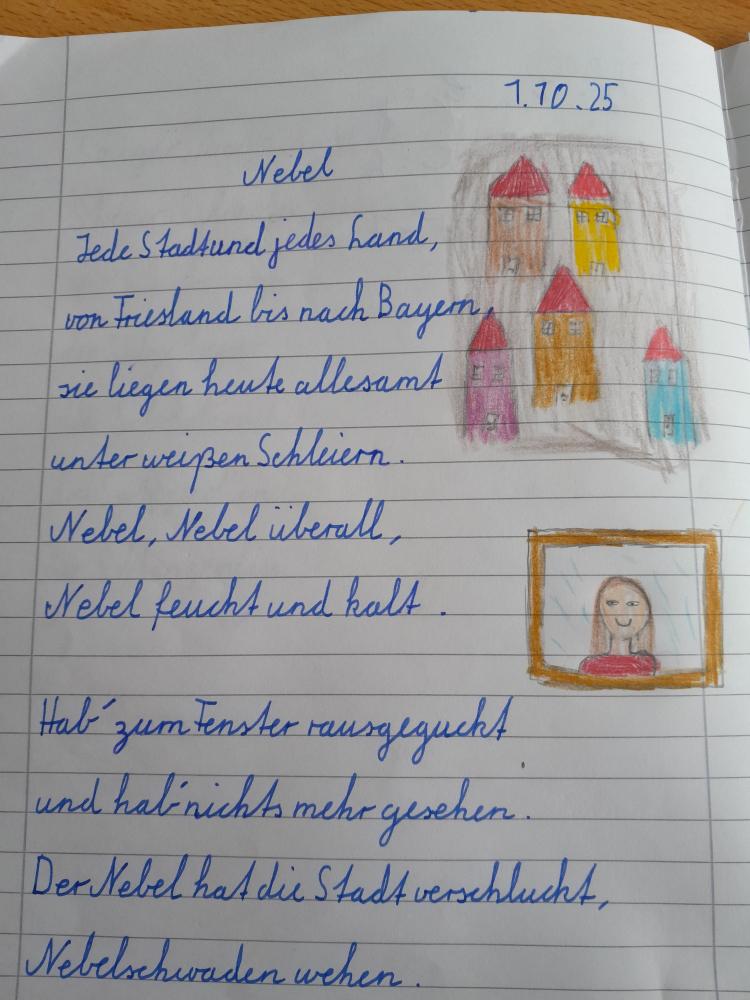 1.10.25
Nebel
Jede Stadt und jedes Land,
von Friesland bis nach Bayern,
sie liegen heute allesamt
unter weißen Schleiern.
Nebel, Nebel überall,
Nebel feucht und kalt.
Hab' zum Fenster rausgeguckt
und hab' nichts mehr gesehen.
Der Nebel hat die Stadt verschluckt,
Nebelschwaden wehen.